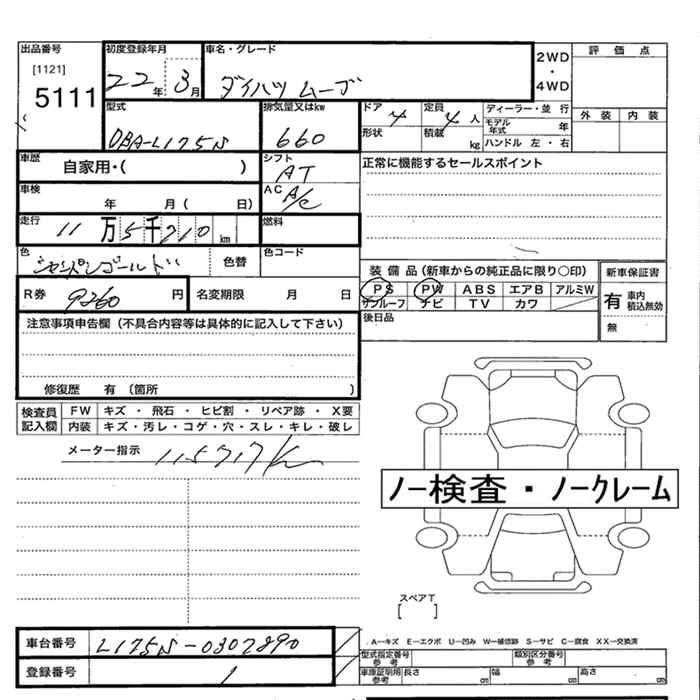 出品番号 初度登録年月 車名・グレード 2WD・4WD 評価点
[1121]
5111
22年 3月 ダイハツ ムーブ
外装 内装
型式 排気量又はkw ドア 定員 人 ディーラー・並行
DBA-L175S 660 4 4
形状 積載 kg モデル年式 年
ハンドル 左・右
車歴 自家用・( ) シフト AT 正常に機能するセールスポイント
車検 年 月( 日) AC A/C
走行 11万5千710km 燃料
色 シャンパンゴールド 色替 色コード
装備品(新車からの純正品に限り○印) 新車保証書
R券 9260円 名変期限 月 日
PS PW ABS エアB アルミW
サンルーフ ナビ TV カワ
有 車内積込無効
無
後日品
注意事項申告欄(不具合内容等は具体的に記入して下さい)
修復歴 有 (箇所 )
検査員記入欄 FW キズ・飛石・ヒビ割・リペア跡・X要
内装 キズ・汚レ・コゲ・穴・スレ・キレ・破レ
メーター指示 115717K
ノー検査・ノークレーム
スペアT
[ ]
車台番号 L175S-0307890
A−キズ E−エクボ U−凹み W−補修跡 S−サビ C−腐食 XX−交換済
登録番号
型式指定番号 参考 類別区分番号 参考
車庫証明用 参考 長さ cm 幅 cm 高さ cm